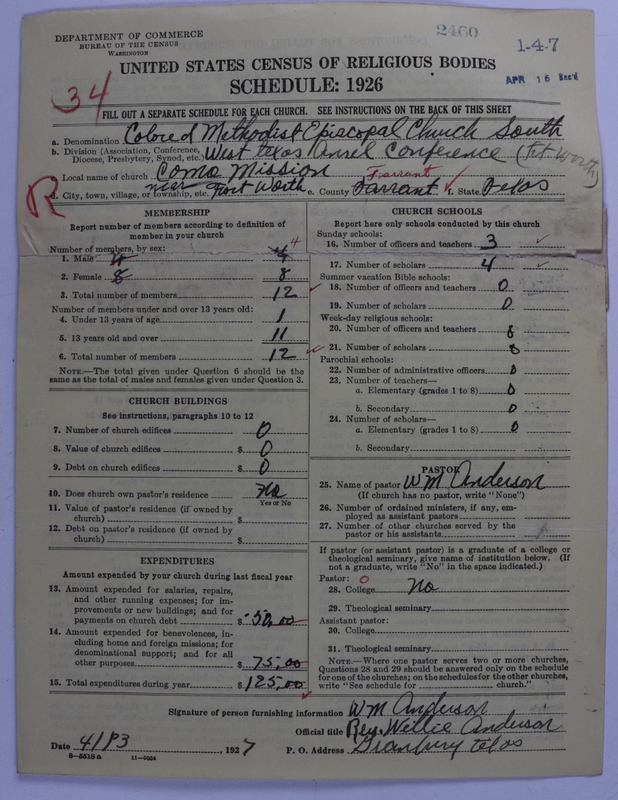 DEPARTMENT OF COMMERCE
BUREAU OF THE CENSUS
WASHINGTON
2460
1-4-7
UNITED STATES CENSUS OF RELIGIOUS BODIES
APR 16 Rec'd
SCHEDULE: 1926
34
FILL OUT A SEPARATE SCHEDULE FOR EACH CHURCH. SEE INSTRUCTIONS ON THE BACK OF THIS SHEET
a. Denomination Colored Methodist Episcopal Church South
b. Division (Association, Conference, Diocese, Presbytery, Synod, etc.) West Texas Annel Conference (Ft Worth)
c. Local name of church Como Mission
R
d. City, town, village, or township, etc. near Fort Worth e. County Tarrant Tarrant f. State Texas
MEMBERSHIP
Report number of members according to definition of
member in your church
Number of members, by sex:
1. Male 4 4 4
2. Female 8 8
3. Total number of members 12
Number of members under and over 13 years old:
4. Under 13 years of age 1
5. 13 years old and over 11
6. Total number of members 12
NOTE.—The total given under Question 6 should be
same as the total of males and females given under Question 3.
CHURCH BUILDINGS
See instructions, paragraphs 10 to 12
7. Number of church edifices 0
8. Value of church edifices $ 0
9. Debt on church edifices $ 0
10. Does church own pastor's residence No
Yes or No
11. Value of pastor's residence (if owned by
church) $
12. Debt on pastor's residence (if owned by
church) $
EXPENDITURES
Amount expended by your church during last fiscal year
13. Amount expended for salaries, repairs,
and other running expenses; for im-
provements or new buildings; and for
payments on church debt $ 50,00
14. Amount expended for benevolences, in-
cluding home and foreign missions; for
denominational support; and for all
other purposes $ 75,00
15. Total expenditures during year $ 125,00
CHURCH SCHOOLS
Report here only schools conducted by this church
Sunday schools:
16. Number of officers and teachers 3
17. Number of scholars 4
Summer vacation Bible schools:
18. Number of officers and teachers 0
19. Number of scholars 0
Week-day religious schools:
20. Number of officers and teachers 0
21. Number of scholars 0
Parochial schools:
22. Number of administrative officers 0
23. Number of teachers—
a. Elementary (grades 1 to 8) 0
b. Secondary 0
24. Number of scholars—
a. Elementary (grades 1 to 8) 0
b. Secondary
PASTOR
25. Name of pastor WM Anderson
(If church has no pastor, write "None")
26. Number of ordained ministers, if any, em-
ployed as assistant pastors
27. Number of other churches served by the
pastor or his assistants
If pastor (or assistant pastor) is a graduate of a college or
theological seminary, give name of institution below. (If
not a graduate, write "No" in the space indicated.)
Pastor: 0
28. College No
29. Theological seminary
Assistant pastor:
30. College
31. Theological seminary
NOTE.—Where one pastor serves two or more churches,
Questions 28 and 29 should be answered only on the schedule
for one of the churches; on the schedules for the other churches,
write "See schedule for church."
Signature of person furnishing information WM Anderson
Official title Rev. Willie Anderson
Date 4/13, 1927 P. O. Address Granbury Texas
8—5518a 11—9024